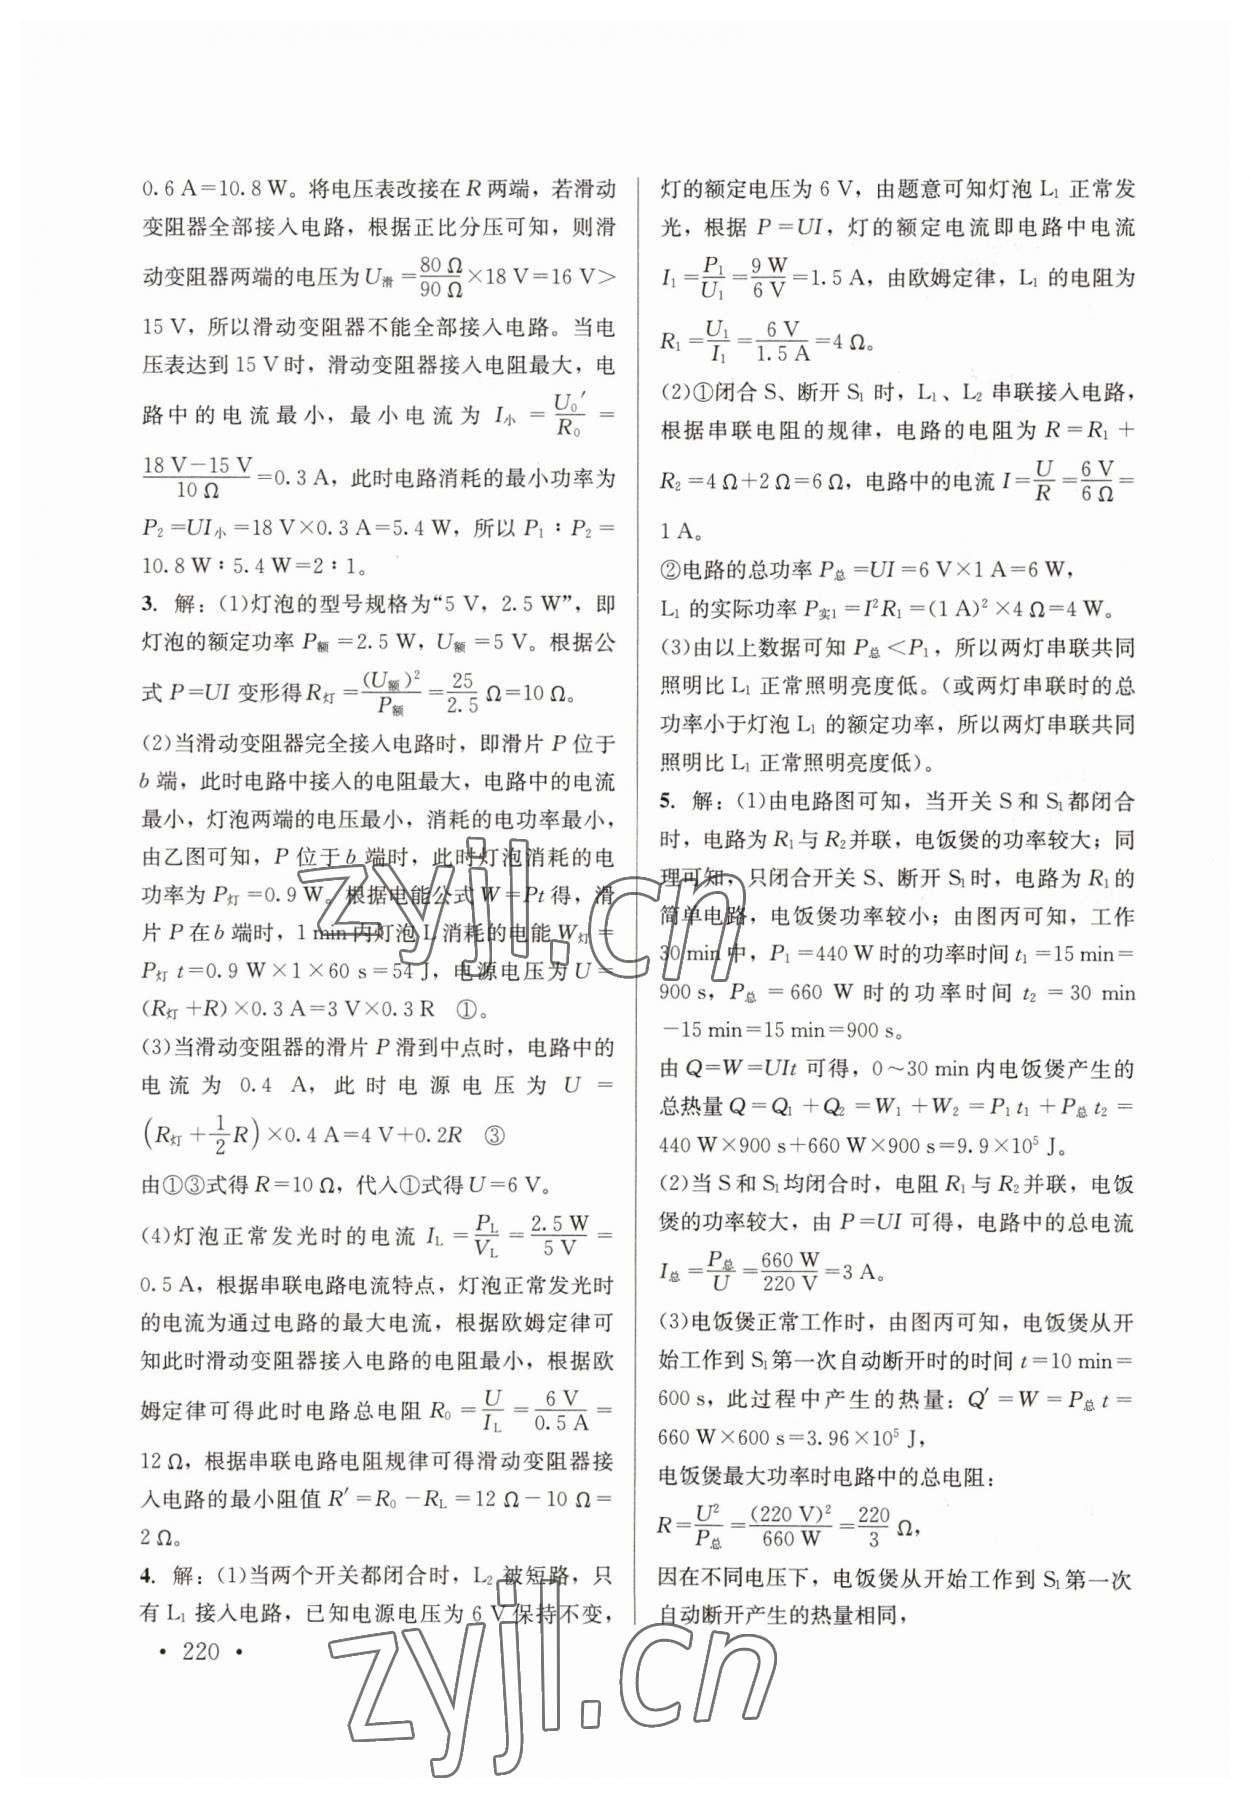 0.6 A=10.8 W。将电压表改接在 R 两端，若滑动
变阻器全部接入电路，根据正比分压可知，则滑
动变阻器两端的电压为 U滑 =80 Ω/90 Ω×18 V=16 V>
15 V，所以滑动变阻器不能全部接入电路。当电
压表达到 15 V 时，滑动变阻器接入电阻最大，电
路中的电流最小，最小电流为 I小 =U₀′/R₀=
18 V-15 V/10 Ω=0.3 A，此时电路消耗的最小功率为
P₂=UI小=18 V×0.3 A=5.4 W，所以 P₁∶P₂=
10.8 W∶5.4 W=2∶1。
3. 解：(1)灯泡的型号规格为“5 V，2.5 W”，即
灯泡的额定功率 P额=2.5 W，U额=5 V。根据公
式 P=UI 变形得 R灯=(U额)²/P额=25/2.5 Ω=10 Ω。
(2)当滑动变阻器完全接入电路时，即滑片 P 位于
b 端，此时电路中接入的电阻最大，电路中的电流
最小，灯泡两端的电压最小，消耗的电功率最小，
由乙图可知，P 位于 b 端时，此时灯泡消耗的电
功率为 P灯=0.9 W。根据电能公式 W=Pt 得，滑
片 P 在 b 端时，1 min 内灯泡 L 消耗的电能 W灯=
P灯 t=0.9 W×1×60 s=54 J，电源电压为 U=
(R灯+R)×0.3 A=3 V×0.3 R ①。
(3)当滑动变阻器的滑片 P 滑到中点时，电路中的
电流为 0.4 A，此时电源电压为 U=
(R灯+1/2R)×0.4 A=4 V+0.2R ③
由①③式得 R=10 Ω，代入①式得 U=6 V。
(4)灯泡正常发光时的电流 I_L=P_L/V_L=2.5 W/5 V=
0.5 A，根据串联电路电流特点，灯泡正常发光时
的电流为通过电路的最大电流，根据欧姆定律可
知此时滑动变阻器接入电路的电阻最小，根据欧
姆定律可得此时电路总电阻 R₀=U/I_L=6 V/0.5 A=
12 Ω，根据串联电路电阻规律可得滑动变阻器接
入电路的最小阻值 R′=R₀-R_L=12 Ω-10 Ω=
2 Ω。
4. 解：(1)当两个开关都闭合时，L₂ 被短路，只
有 L₁ 接入电路，已知电源电压为 6 V 保持不变，
• 220 •
灯的额定电压为 6 V，由题意可知灯泡 L₁ 正常发
光，根据 P=UI，灯的额定电流即电路中电流
I₁=P₁/U₁=9 W/6 V=1.5 A，由欧姆定律，L₁ 的电阻为
R₁=U₁/I₁=6 V/1.5 A=4 Ω。
(2)①闭合 S、断开 S₁ 时，L₁、L₂ 串联接入电路，
根据串联电阻的规律，电路的电阻为 R=R₁+
R₂=4 Ω+2 Ω=6 Ω，电路中的电流 I=U/R=6 V/6 Ω=
1 A。
②电路的总功率 P总=UI=6 V×1 A=6 W，
L₁ 的实际功率 P实1=I²R₁=(1 A)²×4 Ω=4 W。
(3)由以上数据可知 P总<P₁，所以两灯串联共同
照明比 L₁ 正常照明亮度低。(或两灯串联时的总
功率小于灯泡 L₁ 的额定功率，所以两灯串联共同
照明比 L₁ 正常照明亮度低)。
5. 解：(1)由电路图可知，当开关 S 和 S₁都闭合
时，电路为 R₁与 R₂并联，电饭煲的功率较大；同
理可知，只闭合开关 S、断开 S₁时，电路为 R₁的
简单电路，电饭煲功率较小；由图丙可知，工作
30 min 中，P₁=440 W 时的功率时间 t₁=15 min=
900 s，P总=660 W 时的功率时间 t₂=30 min
-15 min=15 min=900 s。
由 Q=W=UIt 可得，0～30 min 内电饭煲产生的
总热量 Q=Q₁+Q₂=W₁+W₂=P₁t₁+P总t₂=
440 W×900 s+660 W×900 s=9.9×10⁵ J。
(2)当 S 和 S₁均闭合时，电阻 R₁与 R₂并联，电饭
煲的功率较大，由 P=UI 可得，电路中的总电流
I总=P总/U=660 W/220 V=3 A。
(3)电饭煲正常工作时，由图丙可知，电饭煲从开
始工作到 S₁第一次自动断开时的时间 t=10 min=
600 s，此过程中产生的热量：Q′=W=P总t=
660 W×600 s=3.96×10⁵ J，
电饭煲最大功率时电路中的总电阻：
R=U²/P总=(220 V)²/660 W=220/3 Ω，
因在不同电压下，电饭煲从开始工作到 S₁第一次
自动断开产生的热量相同，
zyjl.cn
zyjl.cn